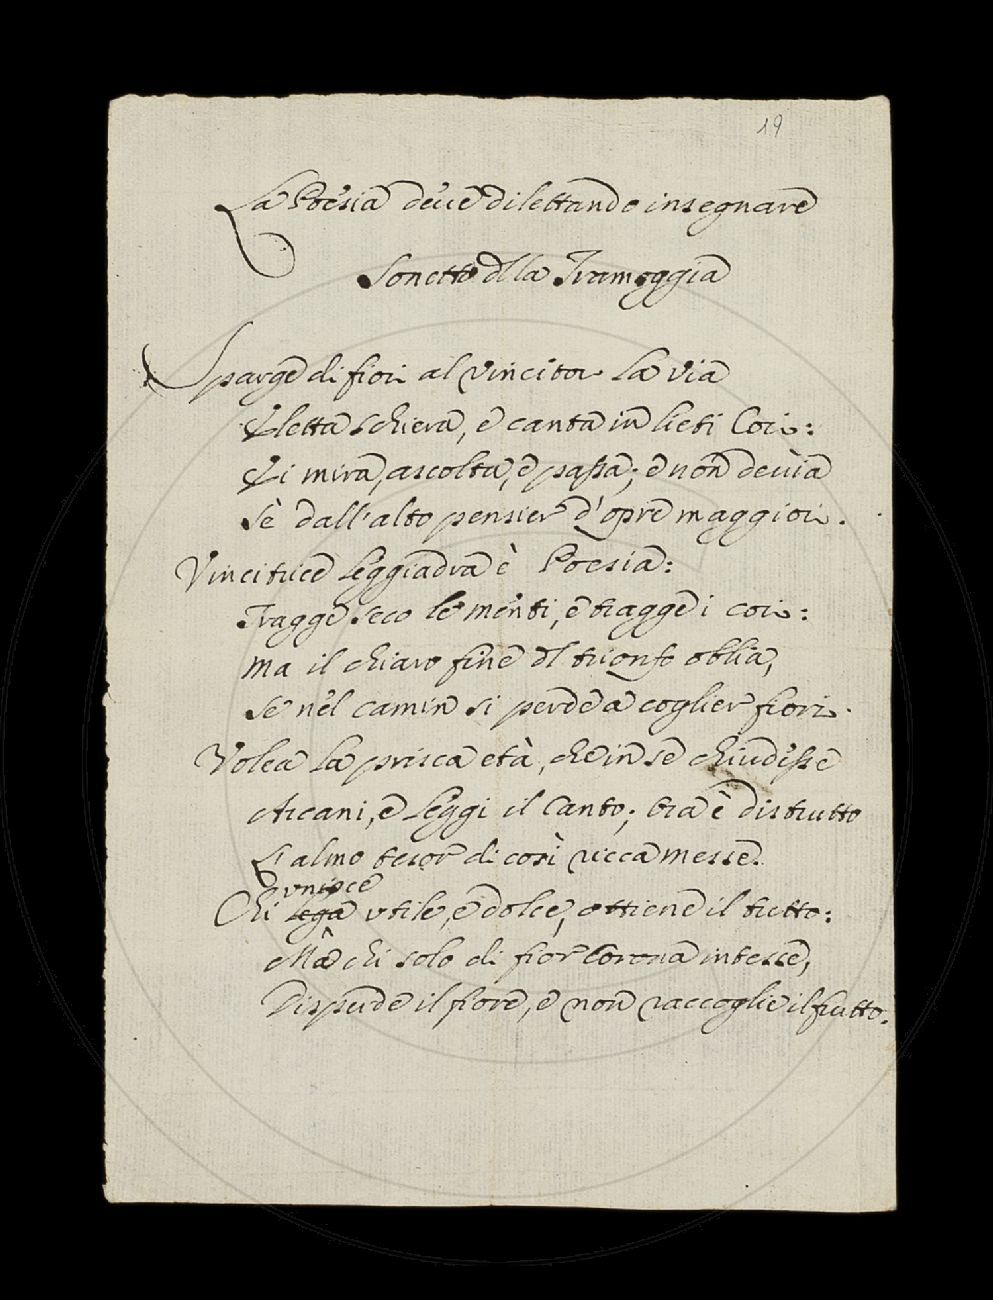 19
La Poesia deue dilettando insegnare
Sonetto dlla Tramoggia
Sparge di fiori al Vincitor la via
Eletta schiera, e canta in lieti Cori:
Ei mira, ascolta, e passa; e non deuia
Sè dall'alto pensier d'opre maggiori.
Vincitrice leggiadra è Poesia:
Tragge seco le menti, e tragge i cori:
Ma il chiaro fine dl trionfo oblia,
Se nel camin si perde a coglier fiori.
Volea la prisca età, che in se chiudesse
Arcani, e Leggi il Canto; ora è distrutto
L'almo tesor di così ricca messe.
unisce
Chi lega utile, e dolce, ottiene il tutto:
Mà chi solo di fior Corona intesse,
Disperde il fiore, e non raccoglie il frutto.